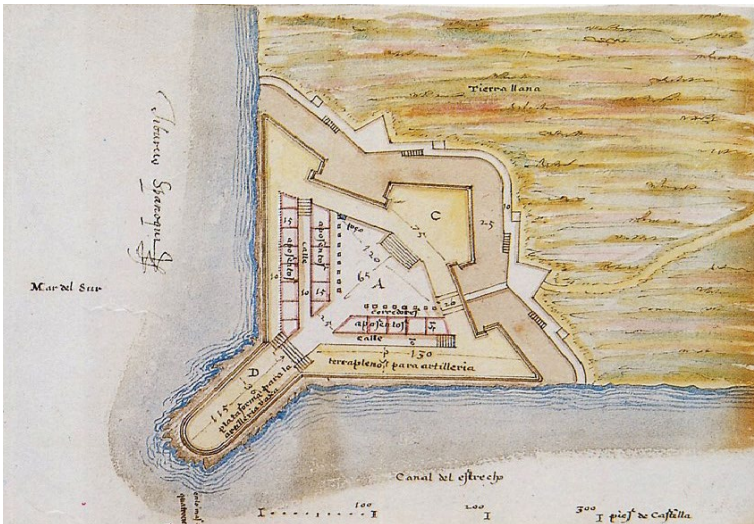 Tierra llana
Tiburcio Spanoqui
Mar del Sur
C
75
25
10
15
aposentos
calle
10
15
aposentos
10
pozo
120
65
A
20
corredores
aposentos
calle
25
130
terrapleno para artilleria
D
115
plataforma para la
artilleria
Canal del estrecho
100
200
300
pies de Castilla